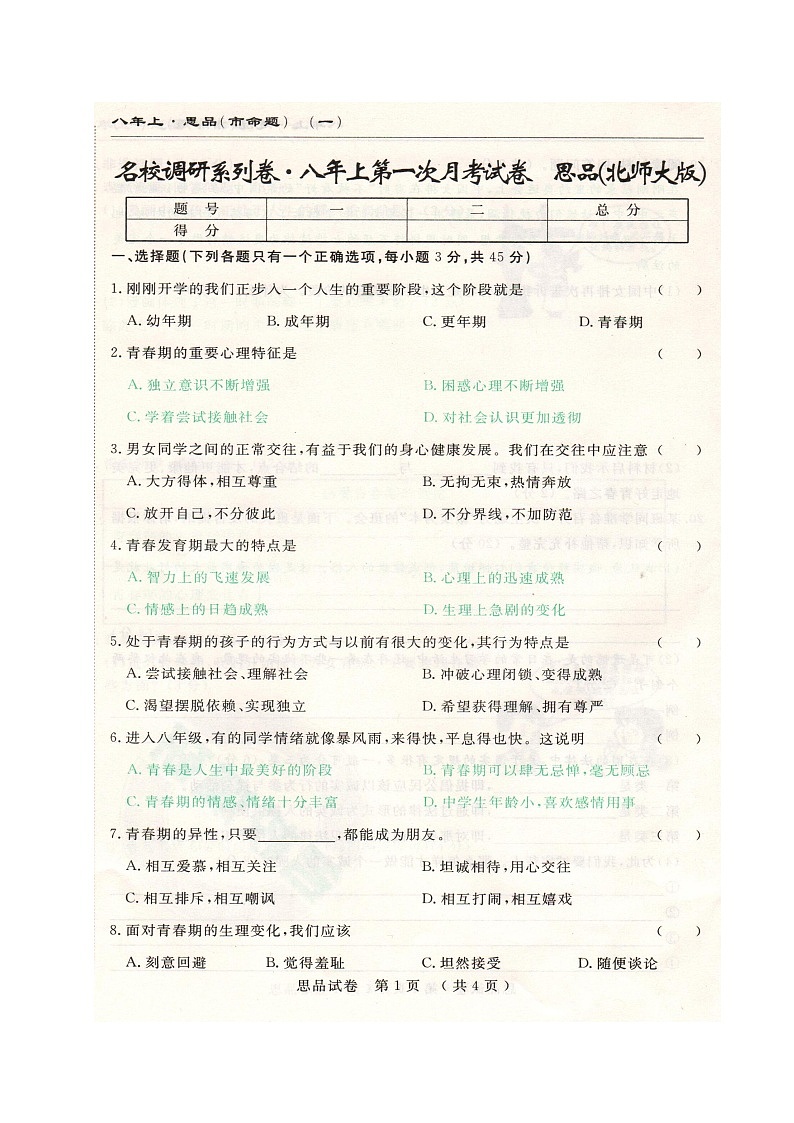 八年上·思品(市命题) (一)
名校调研系列卷·八年上第一次月考试卷 思品(北师大版)
题 号 一 二 总 分
得 分
一、选择题(下列各题只有一个正确选项,每小题 3 分,共 45 分)
1. 刚刚开学的我们正步入一个人生的重要阶段,这个阶段就是 ( )
A. 幼年期 B. 成年期 C. 更年期 D. 青春期
2. 青春期的重要心理特征是 ( )
A. 独立意识不断增强 B. 困惑心理不断增强
C. 学着尝试接触社会 D. 对社会认识更加透彻
3. 男女同学之间的正常交往,有益于我们的身心健康发展。我们在交往中应注意 ( )
A. 大方得体,相互尊重 B. 无拘无束,热情奔放
C. 放开自己,不分彼此 D. 不分界线,不加防范
4. 青春发育期最大的特点是 ( )
A. 智力上的飞速发展 B. 心理上的迅速成熟
C. 情感上的日趋成熟 D. 生理上急剧的变化
5. 处于青春期的孩子的行为方式与以前有很大的变化,其行为特点是 ( )
A. 尝试接触社会、理解社会 B. 冲破心理闭锁、变得成熟
C. 渴望摆脱依赖、实现独立 D. 希望获得理解、拥有尊严
6. 进入八年级,有的同学情绪就像暴风雨,来得快,平息得也快。这说明 ( )
A. 青春是人生中最美好的阶段 B. 青春期可以肆无忌惮,毫无顾忌
C. 青春期的情感、情绪十分丰富 D. 中学生年龄小,喜欢感情用事
7. 青春期的异性,只要__________,都能成为朋友。 ( )
A. 相互爱慕,相互关注 B. 坦诚相待,用心交往
C. 相互排斥,相互嘲讽 D. 相互打闹,相互嬉戏
8. 面对青春期的生理变化,我们应该 ( )
A. 刻意回避 B. 觉得羞耻 C. 坦然接受 D. 随便谈论
思品试卷 第 1 页 (共 4 页)